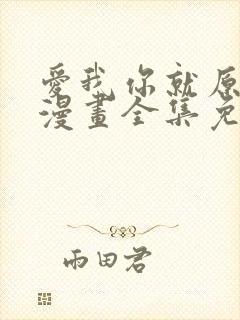 愛我你就原
漫畫全集免
雨田君